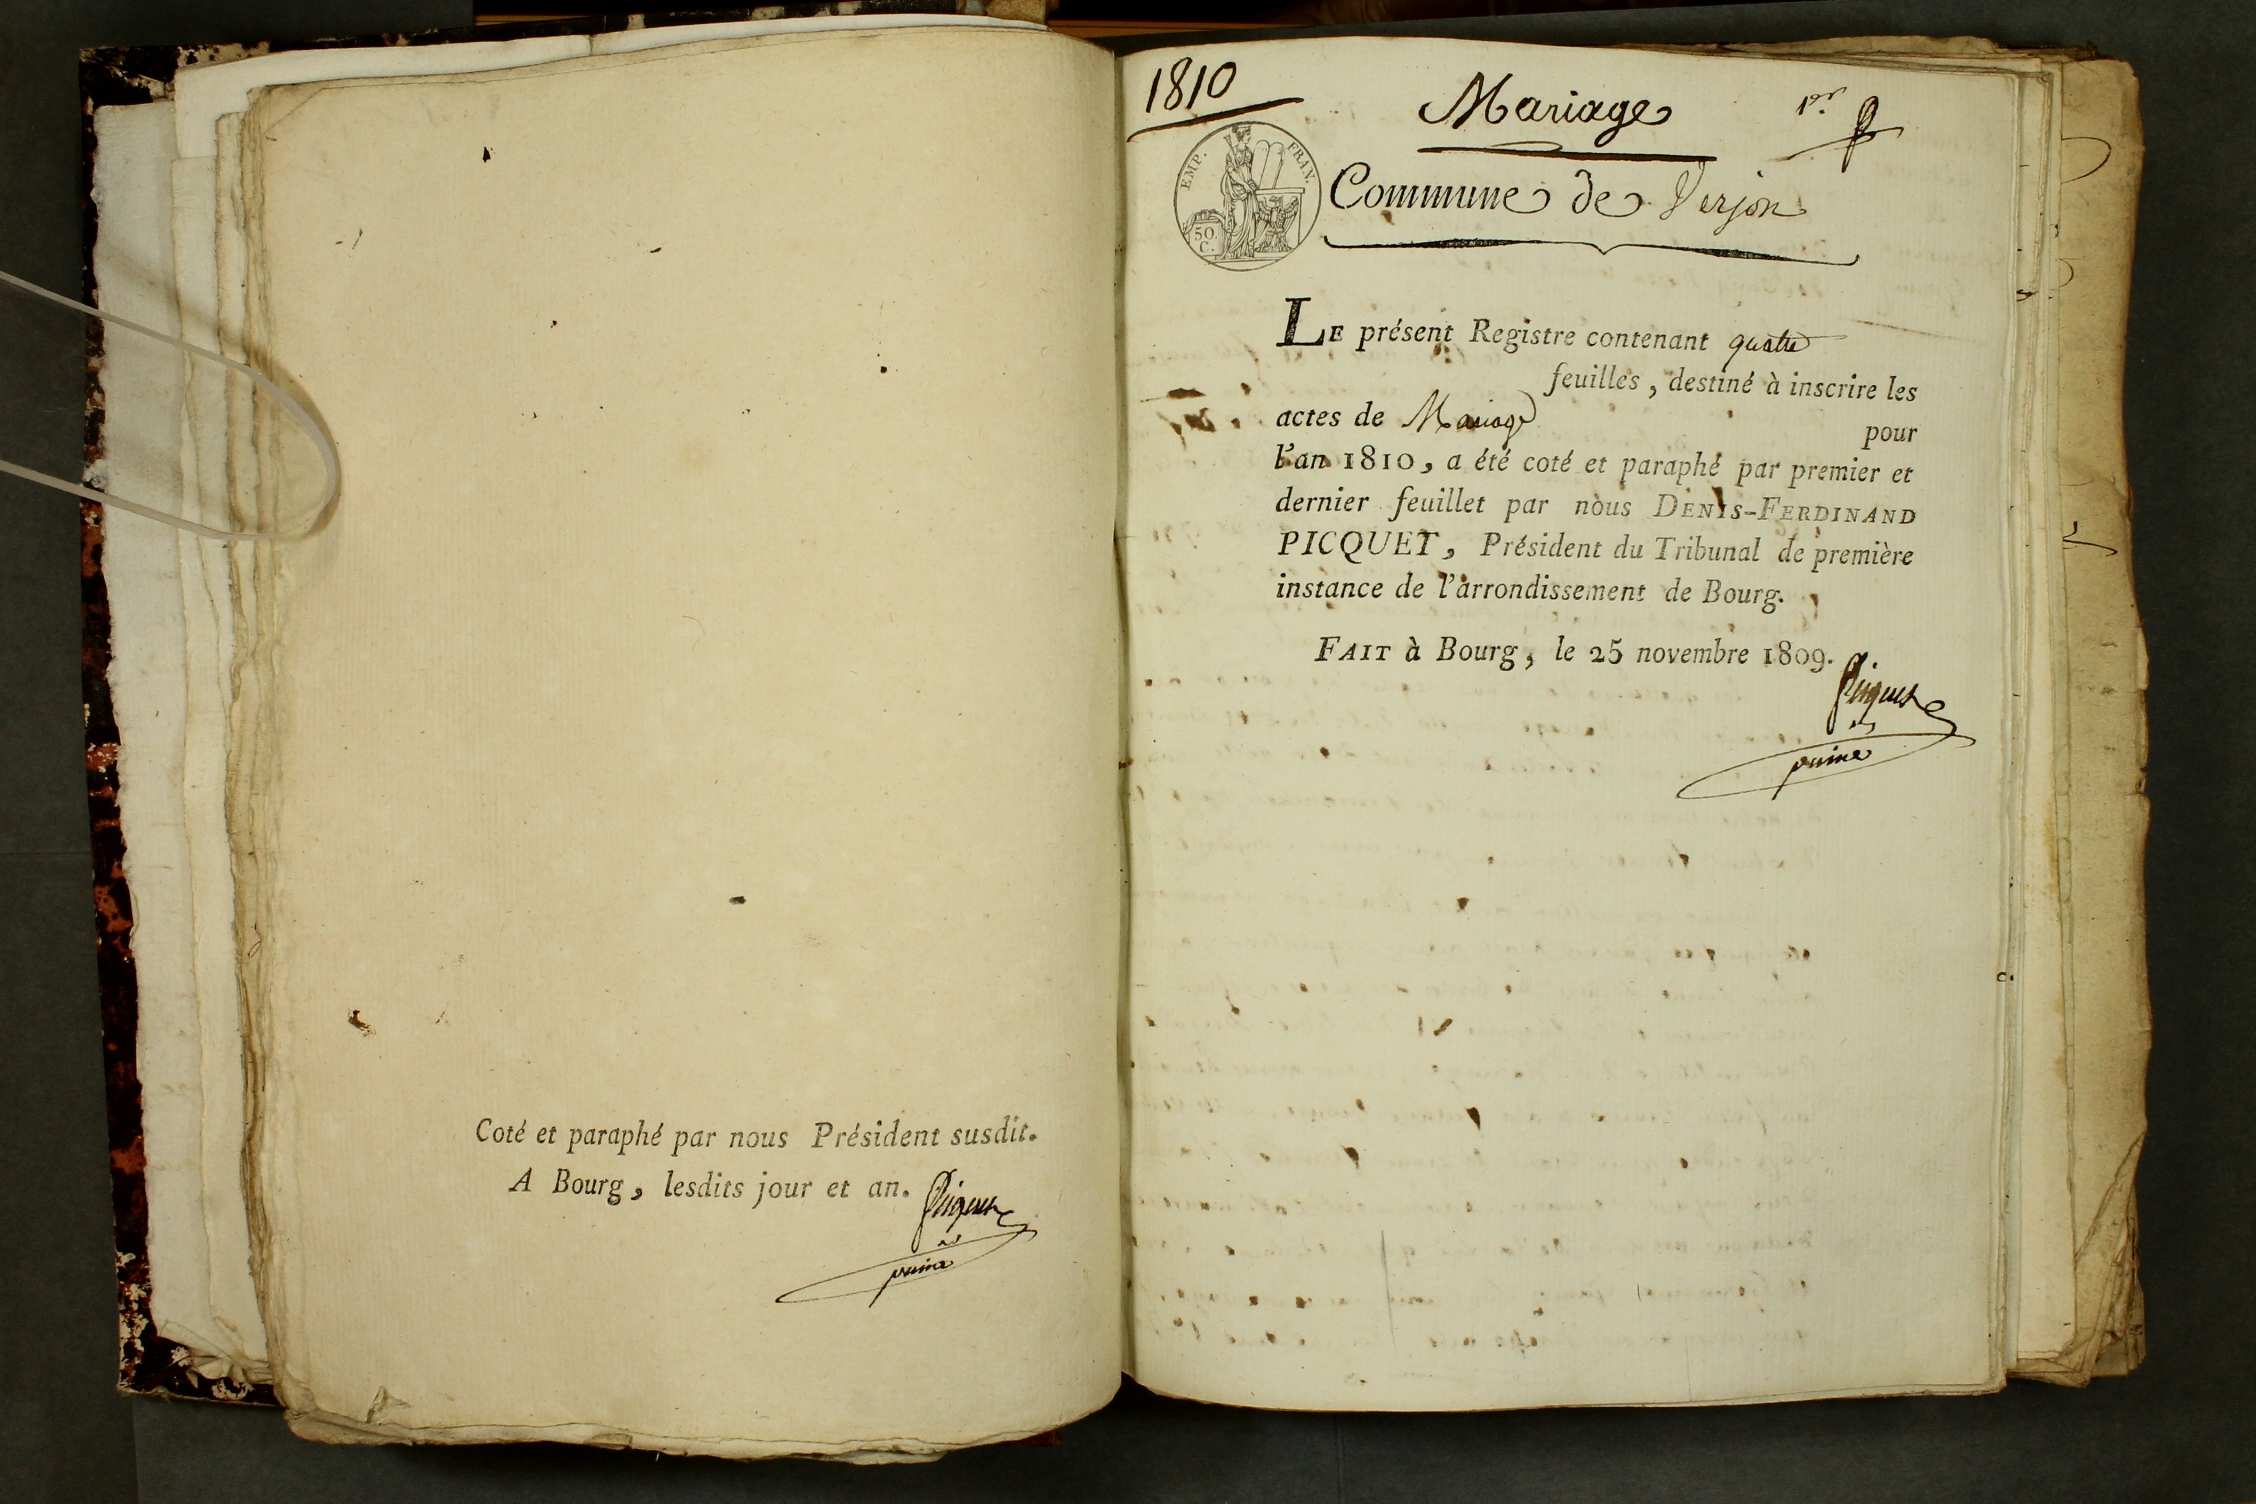 Coté et paraphé par nous Président susdit.
A Bourg, lesdits jour et an.
Picquet
1810
Mariage
1er.
EMP. FRAN.
50.
C.
Commune de Verjon
LE présent Registre contenant quatre
feuilles, destiné à inscrire les
actes de Mariage
pour
l'an 1810, a été coté et paraphé par premier et
dernier feuillet par nous DENIS-FERDINAND
PICQUET, Président du Tribunal de première
instance de l'arrondissement de Bourg.
FAIT à Bourg, le 25 novembre 1809.
Picquet